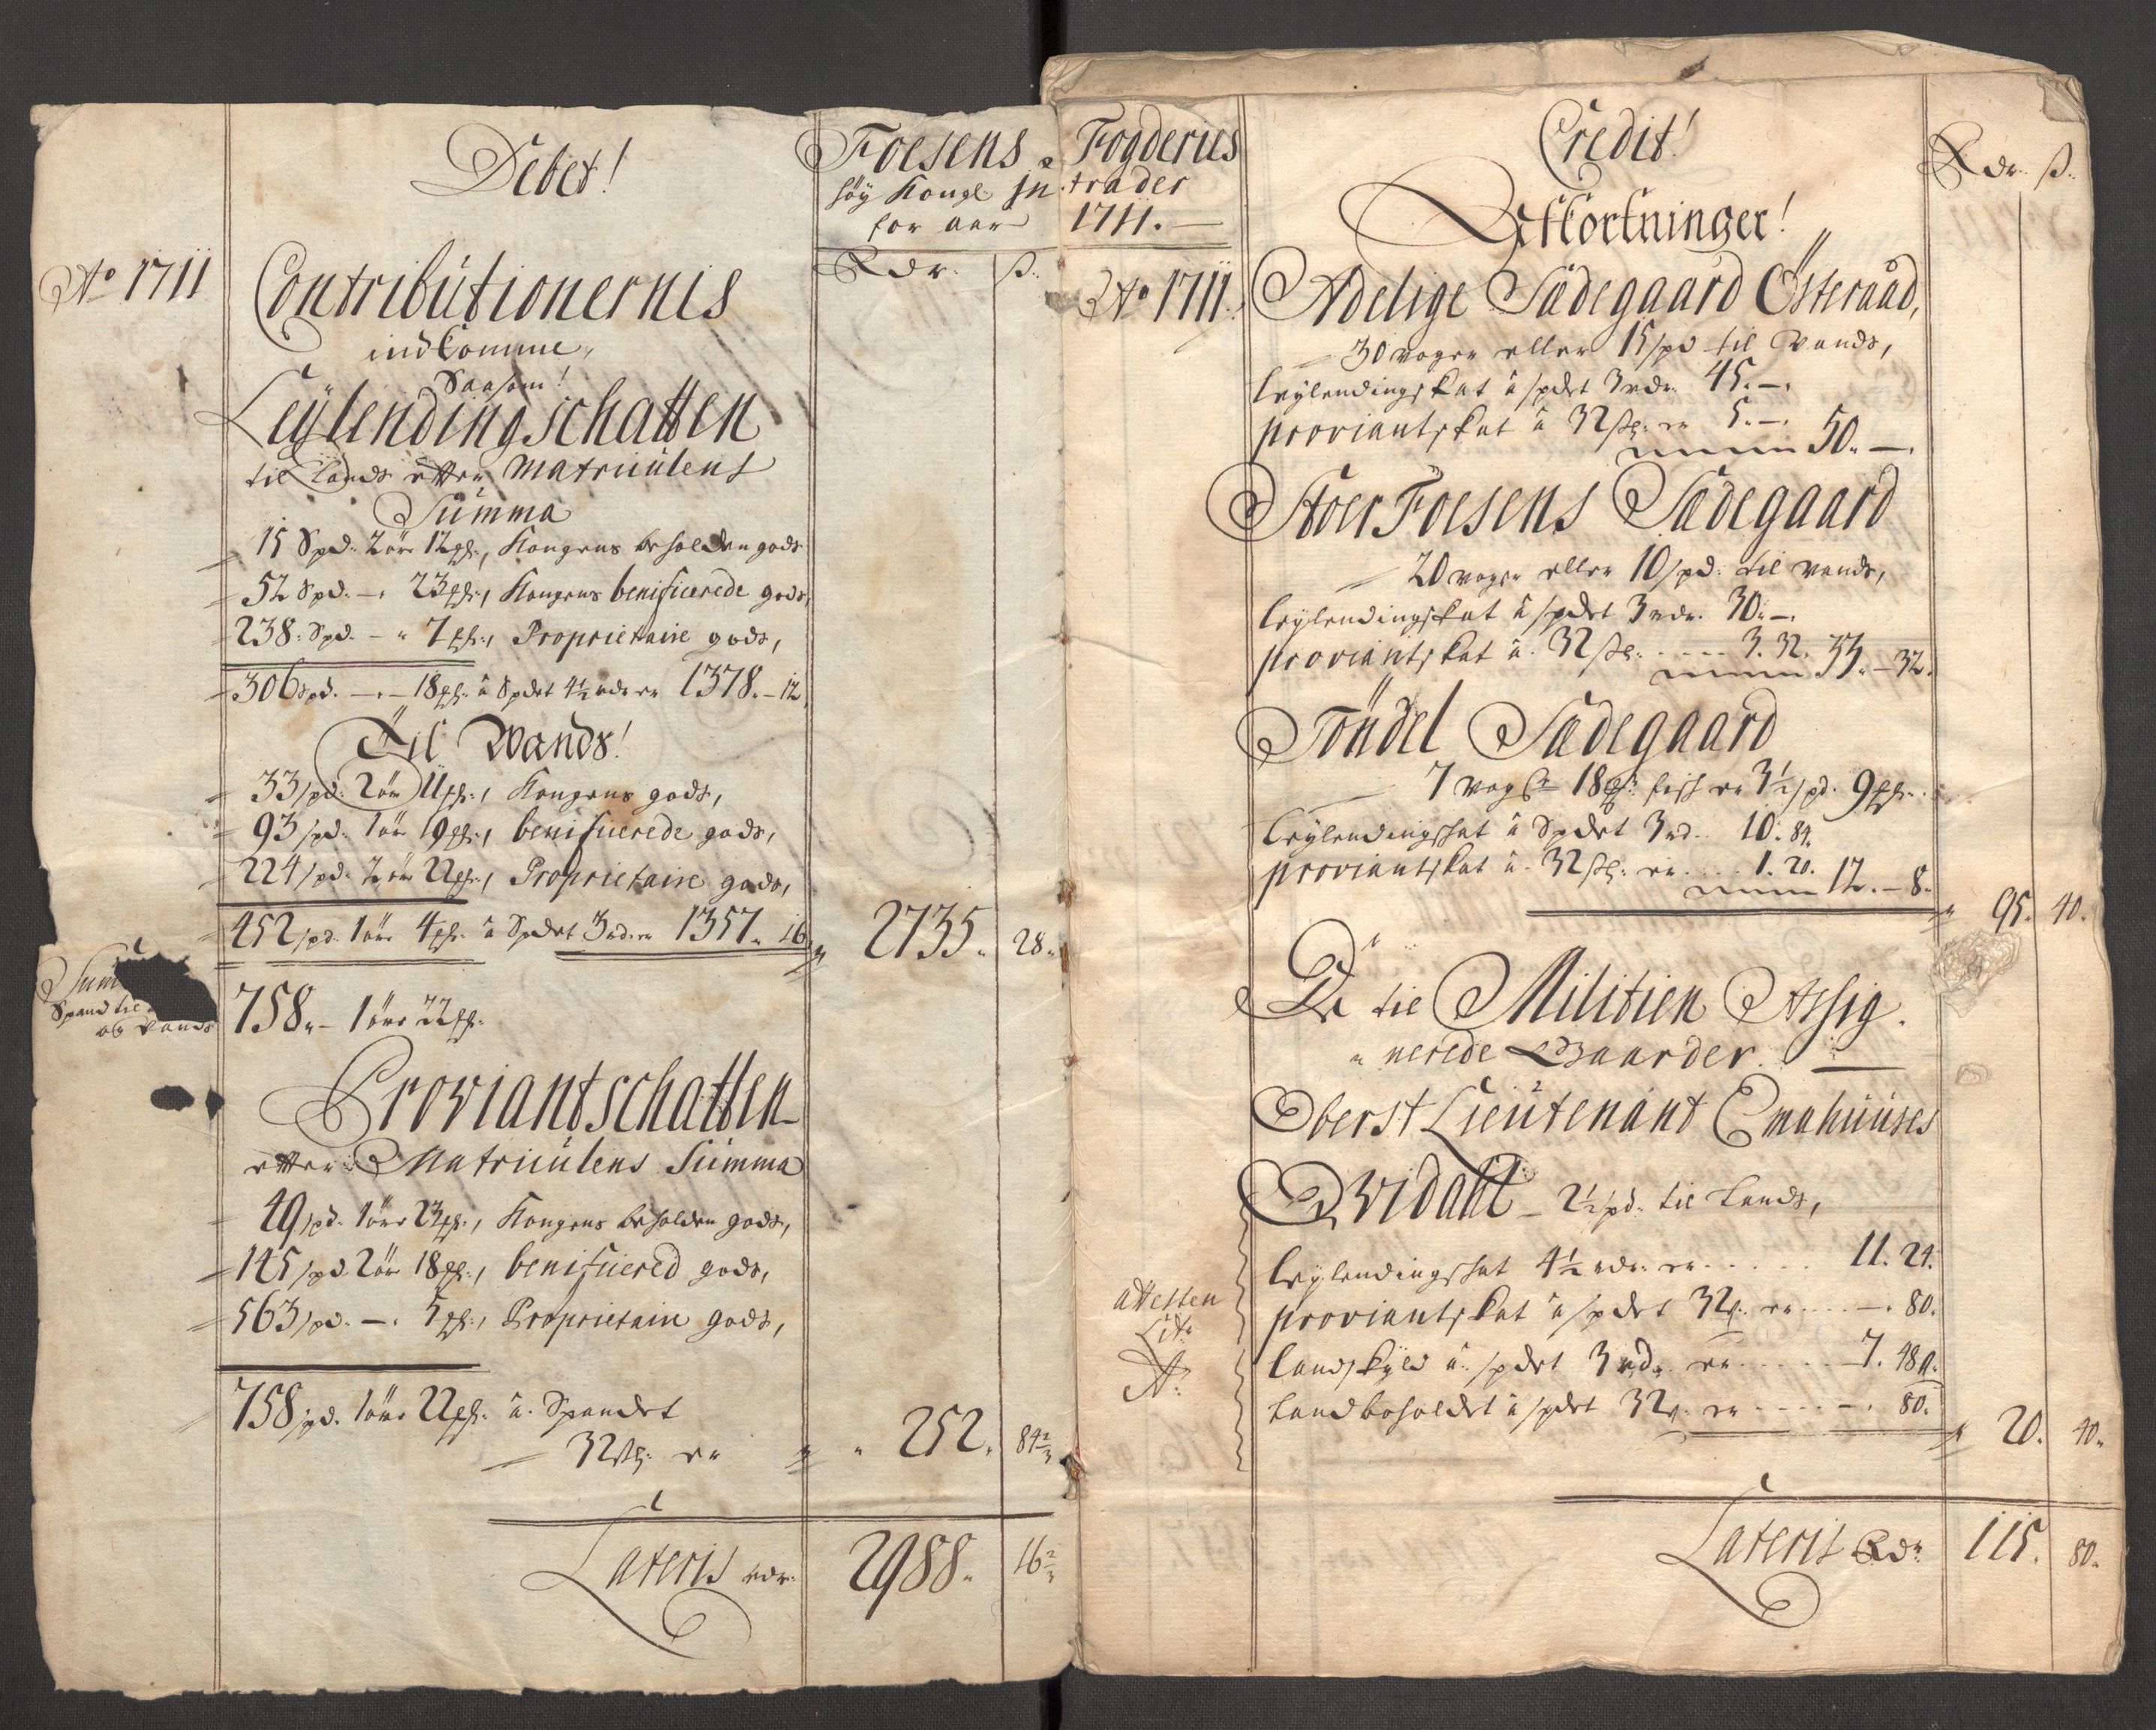 Debet!
Foesens Fogderies
höy Kongl In trader
for aar 1711.
Ao 1711
Rdr. ß.
Contributionernis
indkomme,
Saasom!
Leÿlendingschatten
til Lands efter Matriculens
Summa
15 Spd. 2 ör 12, Kongens beholden gods
52 Spd. — 23, Kongens benificerede gods,
238. Spd. — 7, Proprietaire gods,
306 spd. — 18 â Spdet 4½ rdr er 1378. — 12
Til Wands!
33 spd. 2 ör 11, Kongens gods,
93 spd. 1 ör 19, benificerede gods,
224 spd. 2 ör 22, Proprietaire gods,
452 spd. 1 ör 4 â Spdet 3 rd. er 1357. 16 2735. 28.
Spand til
og Vands
758. — 1 ör 22
Proviantschatten
efter Matriculens Summa
49 spd. 1 ör 23, Kongens beholden gods,
145 spd 2 ör 18, benificered gods,
563 spd. — 5, Proprietaire gods,
758 spd. 1 ör 22 â Spandet
32 er 252. 84⅔
Lateris rdr. 2988. 16⅔
Credit!
Rdr. ß.
Affkortninger!
Ao 1711.
Adelige Sædegaard Østeraad,
30 voger eller 15 spd til Vands,
leÿlendingskat â spdet 3 rdr. 45. —.
proviantskat â 32 er 5. —.
50. —.
StoerFoesens Sædegaard
20 voger eller 10 spd. til vands,
leÿlendingskat â spdet 3 rdr. 30. —.
proviantskat â 32 3. 32. 33. — 32.
Töndel Sædegaard
7 vog 18 fisk er 3½ spd. 9
leÿlendingskat â Spdet 3 rd. 10. 84.
proviantskat â 32 er 1. 20. 12. — 8.
95. 40.
De til Militien Assig
nerede Gaarder.
Oberst Lieutenant Emahuuses
Qvidahl — 2½ spd. til Lands,
leÿlendingskat 4½ rdr. er 11. 24.
proviantskat â spdet 32 er —. 80.
landskÿld â spdet 3 rdr. er 7. 48.
Landboholdet â spdet 32 er —. 80.
20. 40.
attesten
Litr
A.
Lateris Rdr 115. 80.